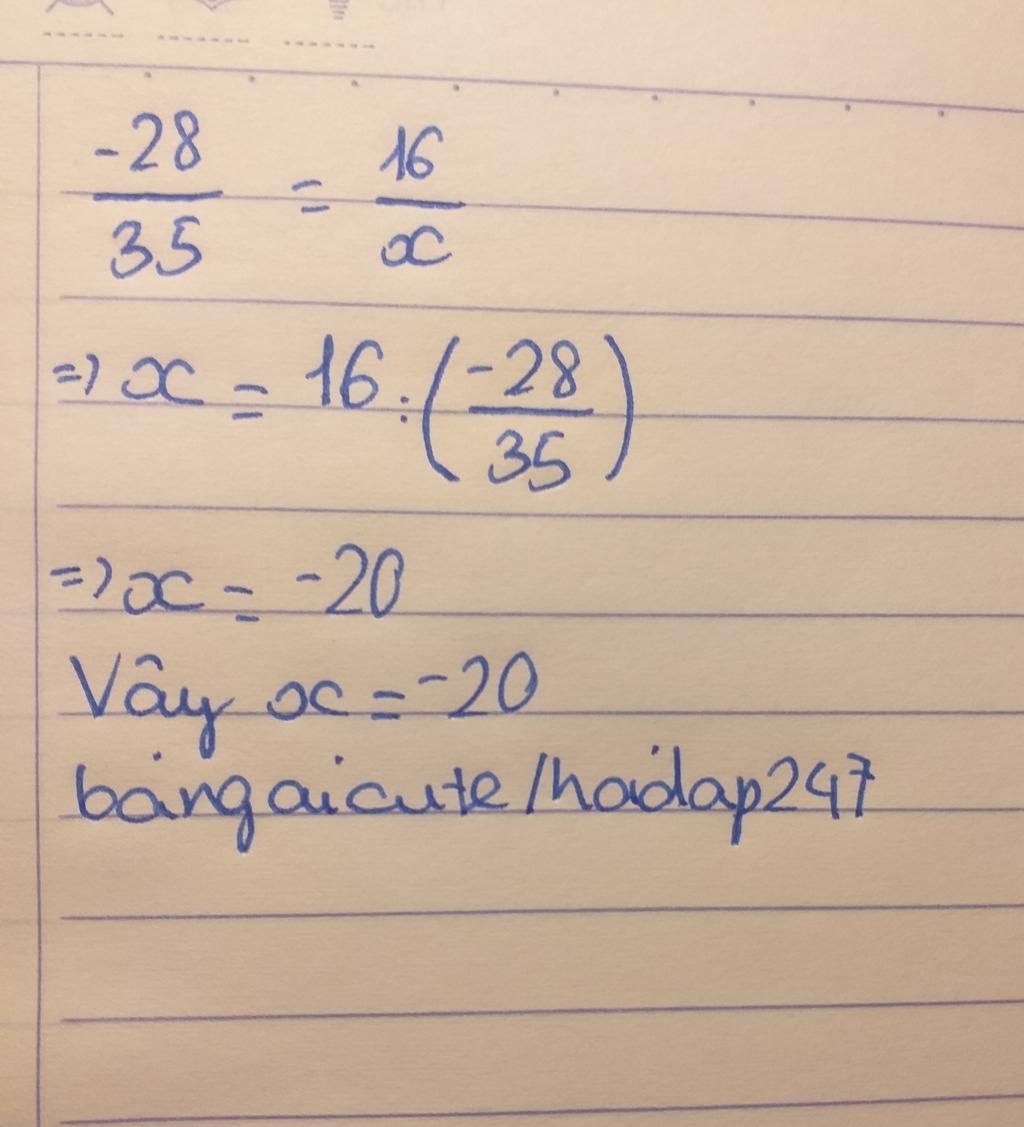 -28/35 = 16/x
=> x = 16 : (-28/35)
=> x = -20
Vây x = -20
bángaicute/hoidap247